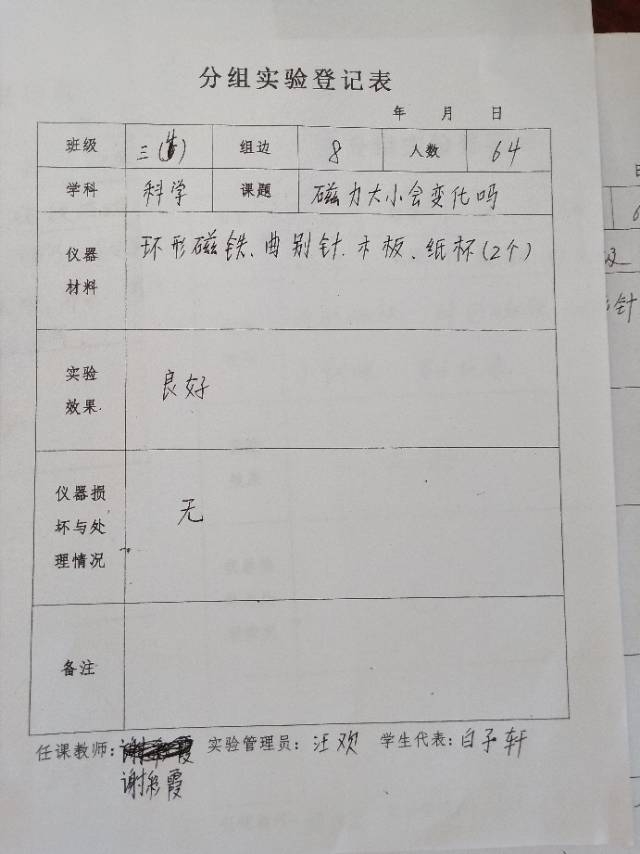 分组实验登记表
年 月 日
班级 三( ) 组边 8 人数 64
学科 科学 课题 磁力大小会变化吗
仪器材料 环形磁铁、曲别针、木板、纸杯(2个)
实验效果 良好
仪器损坏与处理情况 无
备注
任课教师: 实验管理员: 汪欢 学生代表: 白子轩
谢彩霞
针